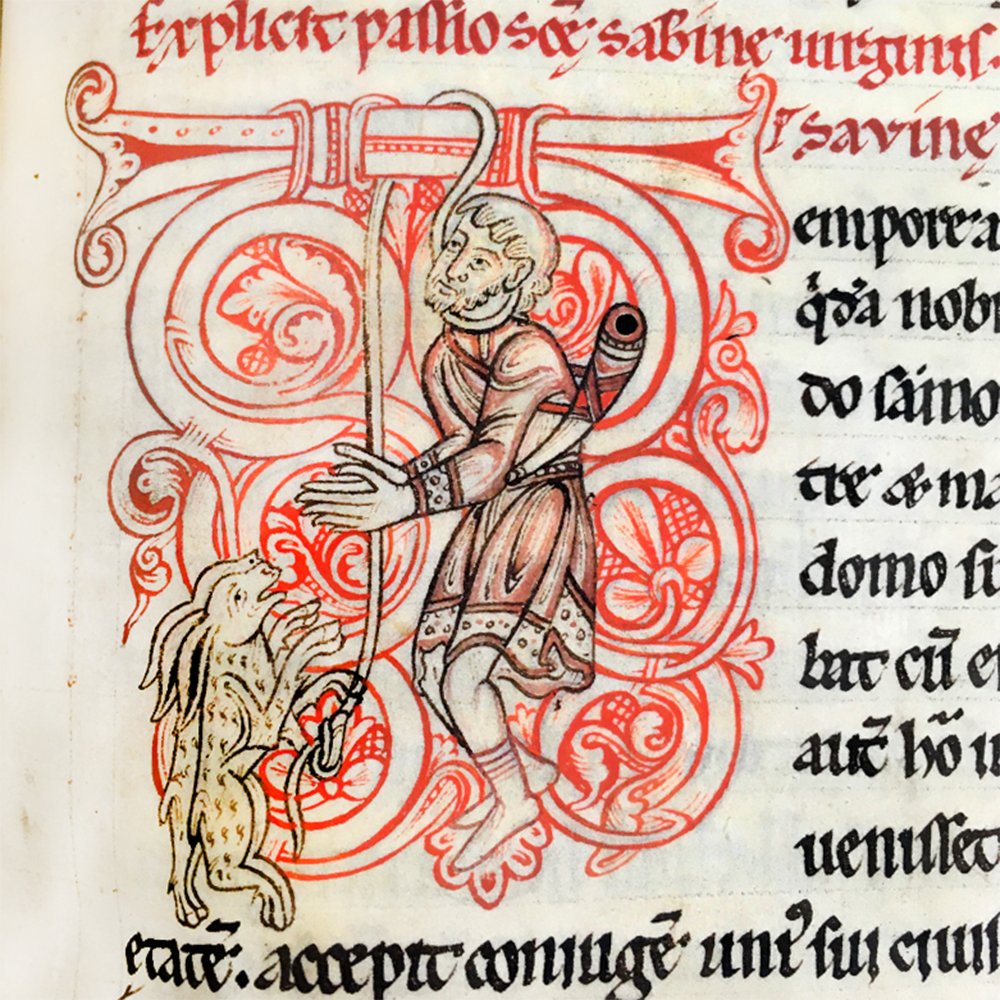 Explicit passio sc̄e sabine uirginis.
savine
empore a
q̇da nob
do
tre & ma
domo su
bat cū e
aut̄ hō i
uenisset
etatē. accepit coniugē uni᾽ sui ciui